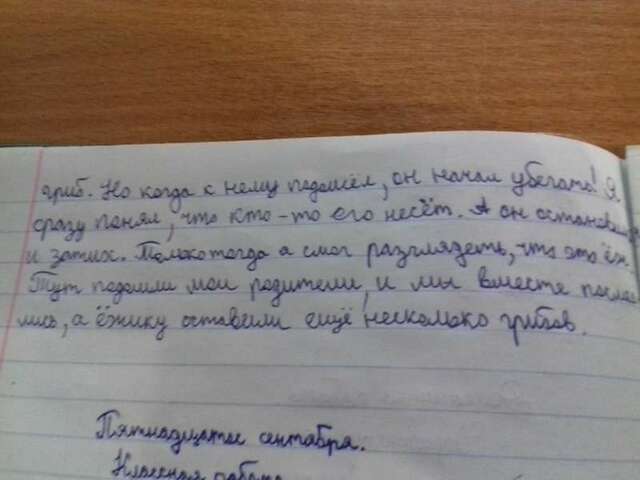 гриб. Но когда к нему подошёл, он начал убегать! Я
сразу понял, что кто-то его несёт. А он остановился
и затих. Только тогда я смог разглядеть, что это ёж.
Тут подошли мои родители, и мы вместе
лись, а ёжику оставили ещё несколько грибов.
Пятнадцатое сентября.
Классная работа